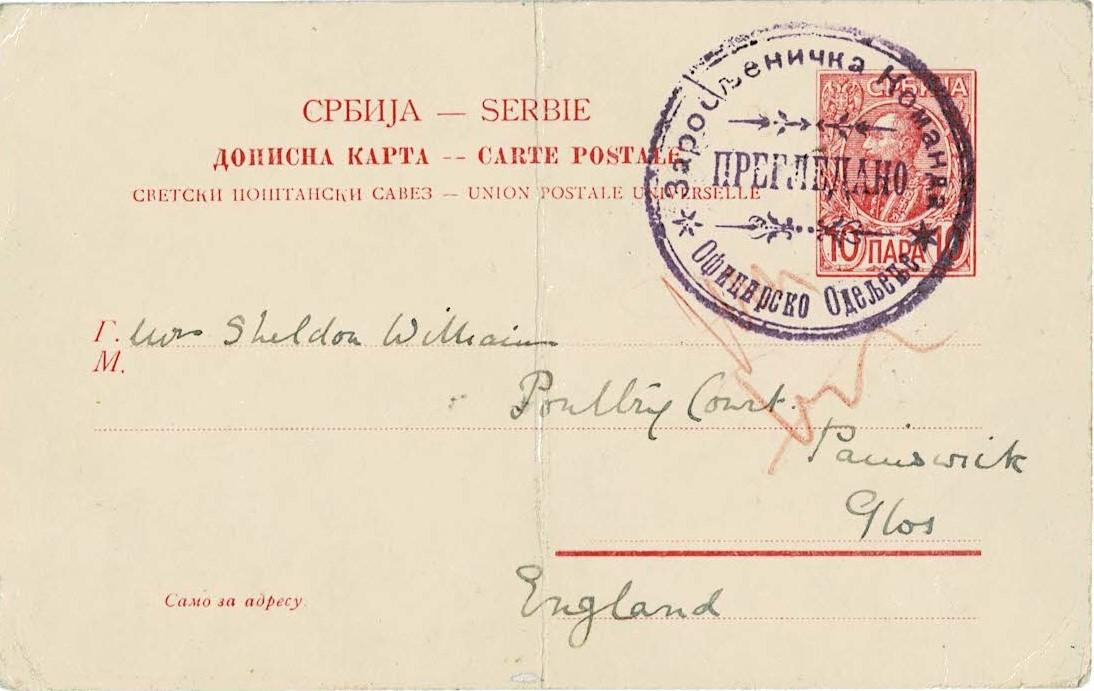 СРБИЈА — SERBIE
ДОПИСНА КАРТА -- CARTE POSTALE
СВЕТСКИ ПОШТАНСКИ САВЕЗ — UNION POSTALE UNIVERSELLE
Заробљеничка Команда
ПРЕГЛЕДАНО
Официрско Одељење
СРБИЈА
10 ПАРА 10
Г. Mrs Sheldon Williams
М.
Court.
Painswick
Glos
England
Само за адресу